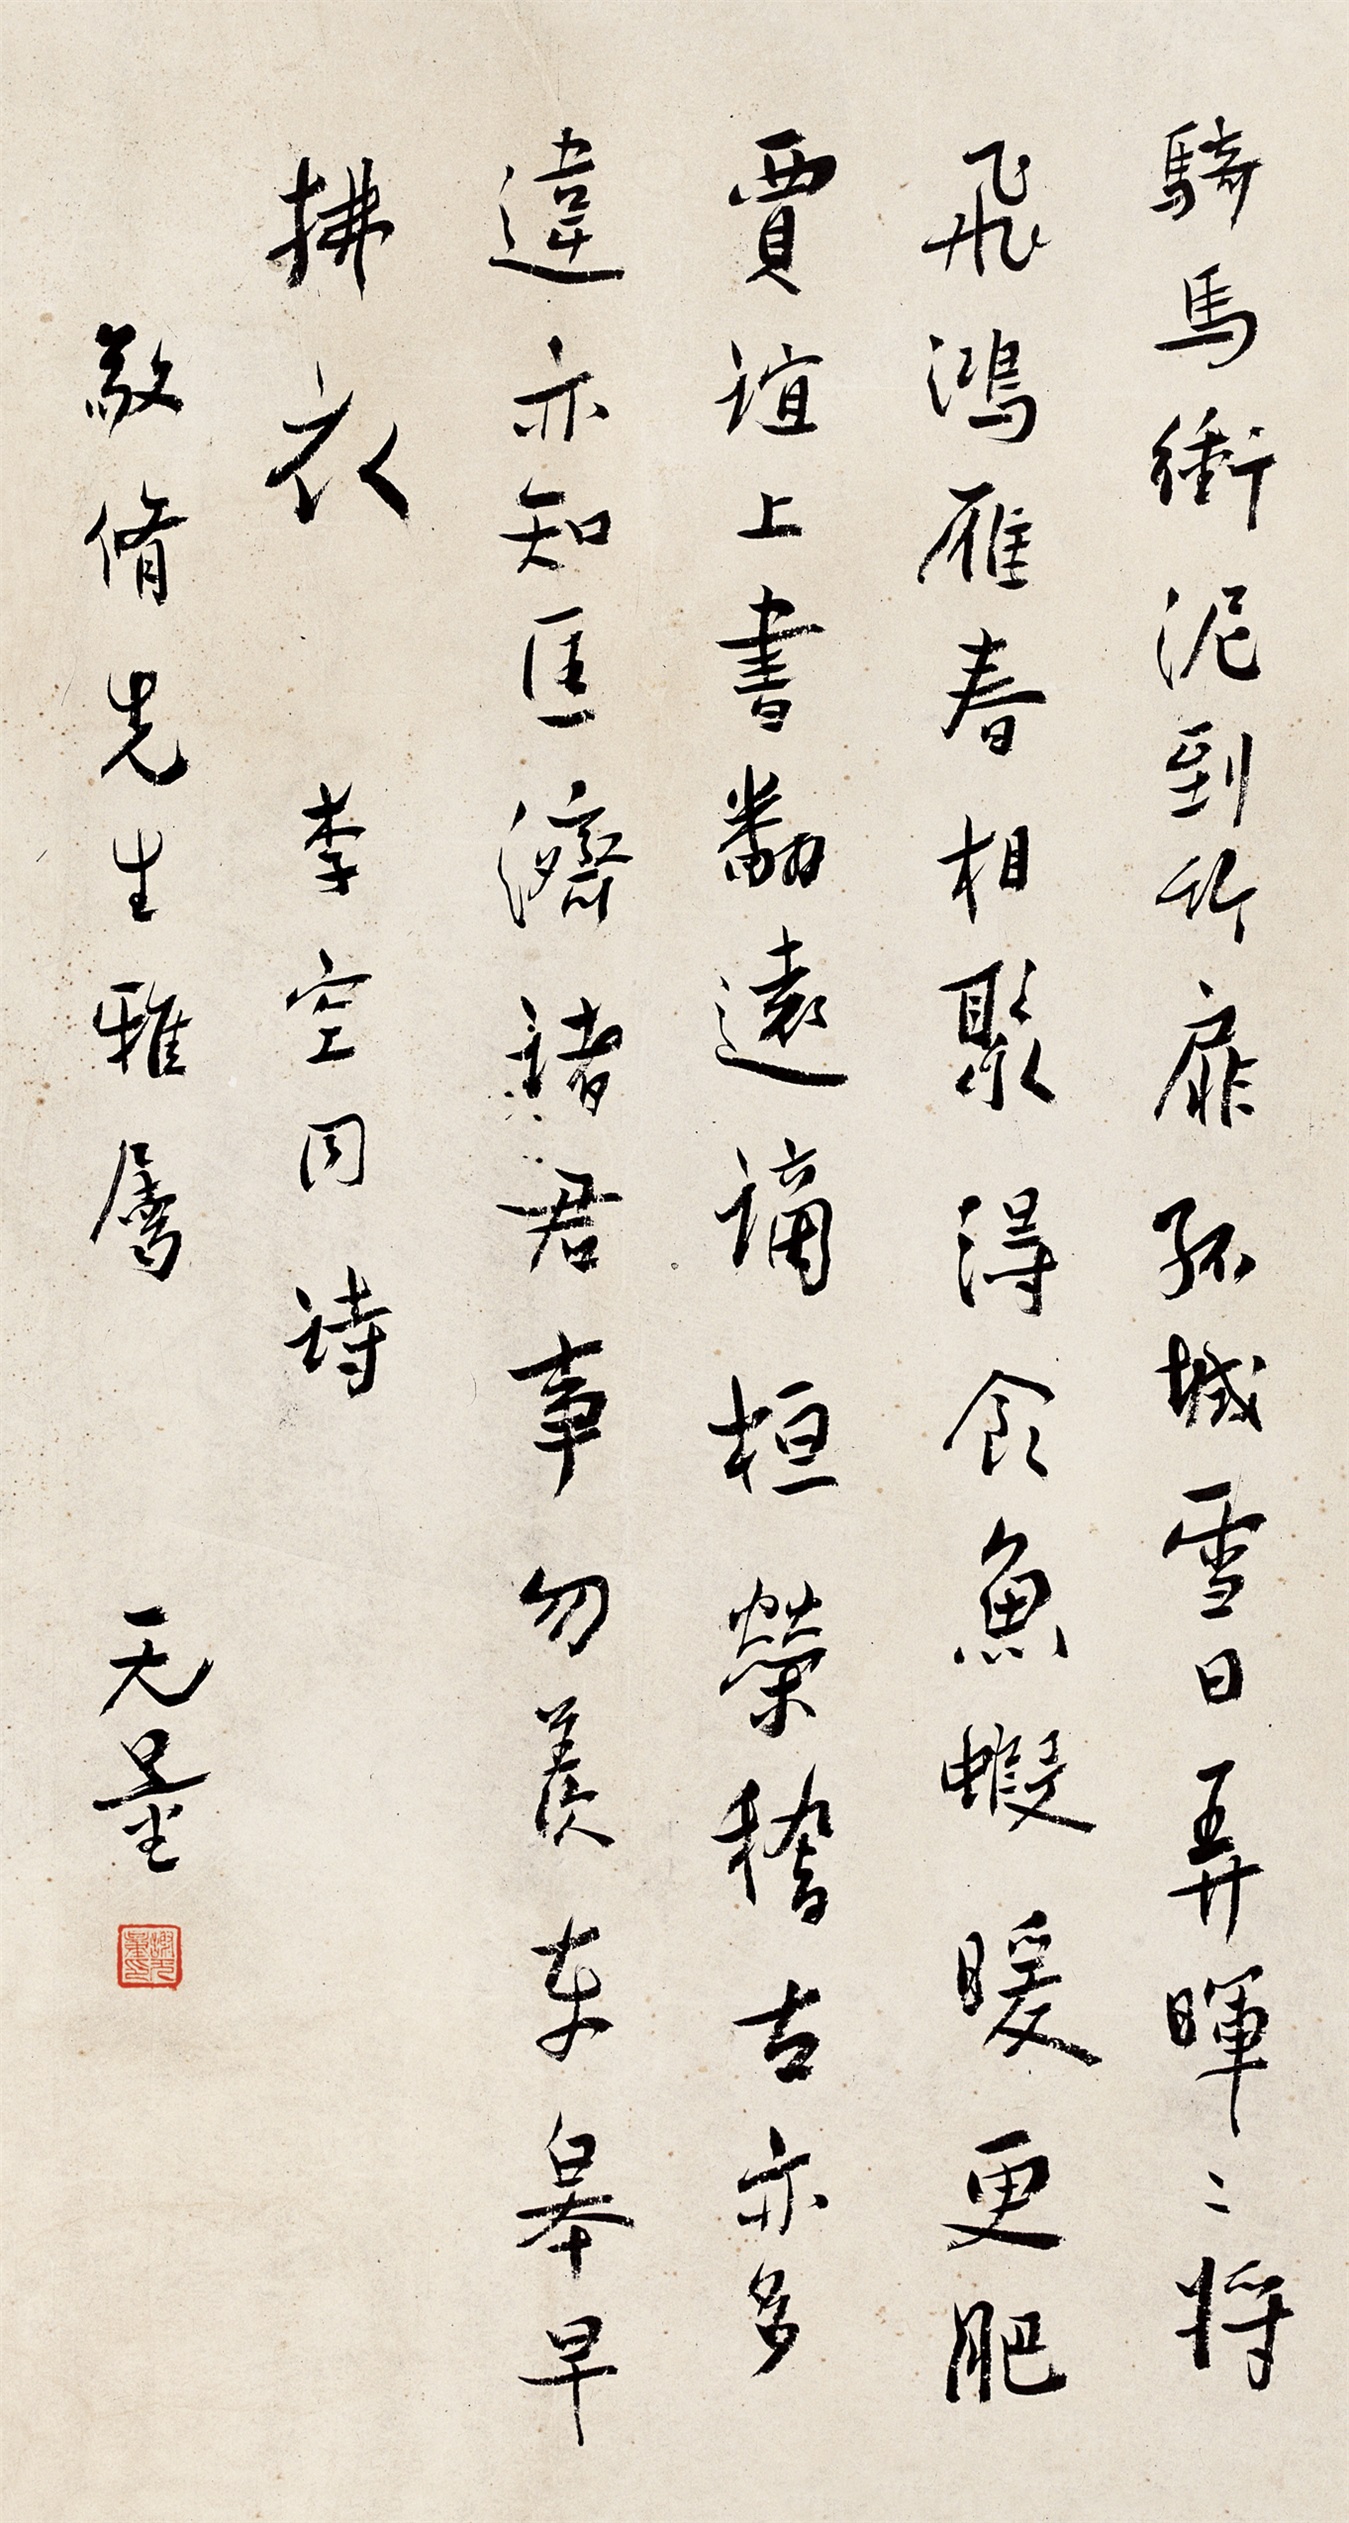 騎馬衝泥到竹扉孤城雪日弄暉〻將
飛鴻雁春相聚得食魚蝦暖更肥
賈誼上書翻遠謫桓榮稽古亦多
違亦知匡濟諸君事勿羨東皋早
拂衣　李空同詩
敬脩先生雅屬　无量
謝无量印